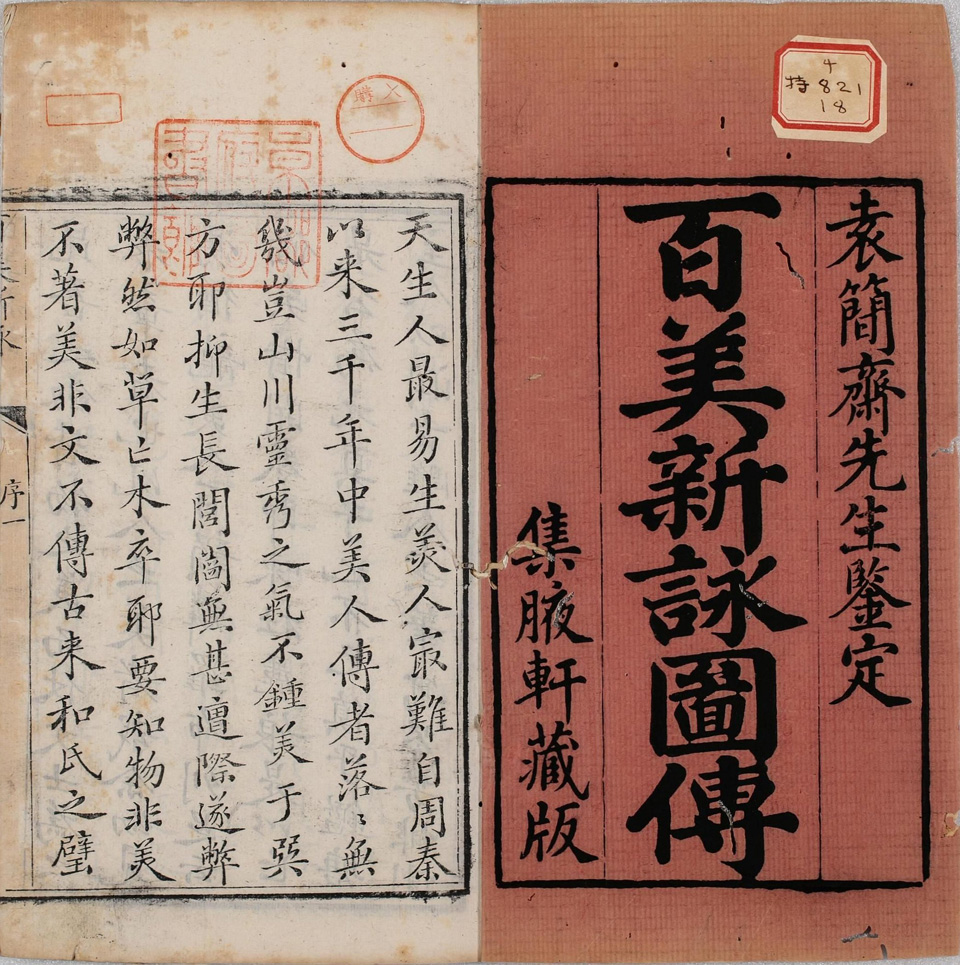 4
特 821
18
袁簡齋先生鑒定
百美新詠圖傳
集腋軒藏版
天生人最易生美人寂難自周秦
以来三千年中美人傳者落〻無
幾豈山川靈秀之氣不鍾美于巽
方耶抑生長閭閻無甚遭際遂弊
弊然如草亡木卒耶要知物非美
不著美非文不傳古来和氏之璧
序一
購